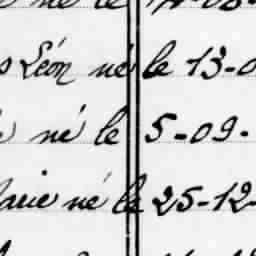 né le 14-08-
s Léon né le 13-0
né le 5-09-
arie né le 25-12-